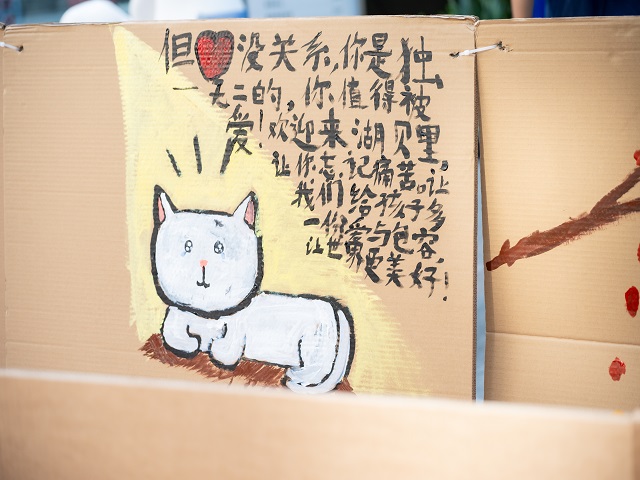 但❤没关系,你是独
一无二的,你值得被
爱!欢迎来湖贝里。
让你忘记痛苦。让
我们给孩子多
一份爱与包容,
让世界更美好!